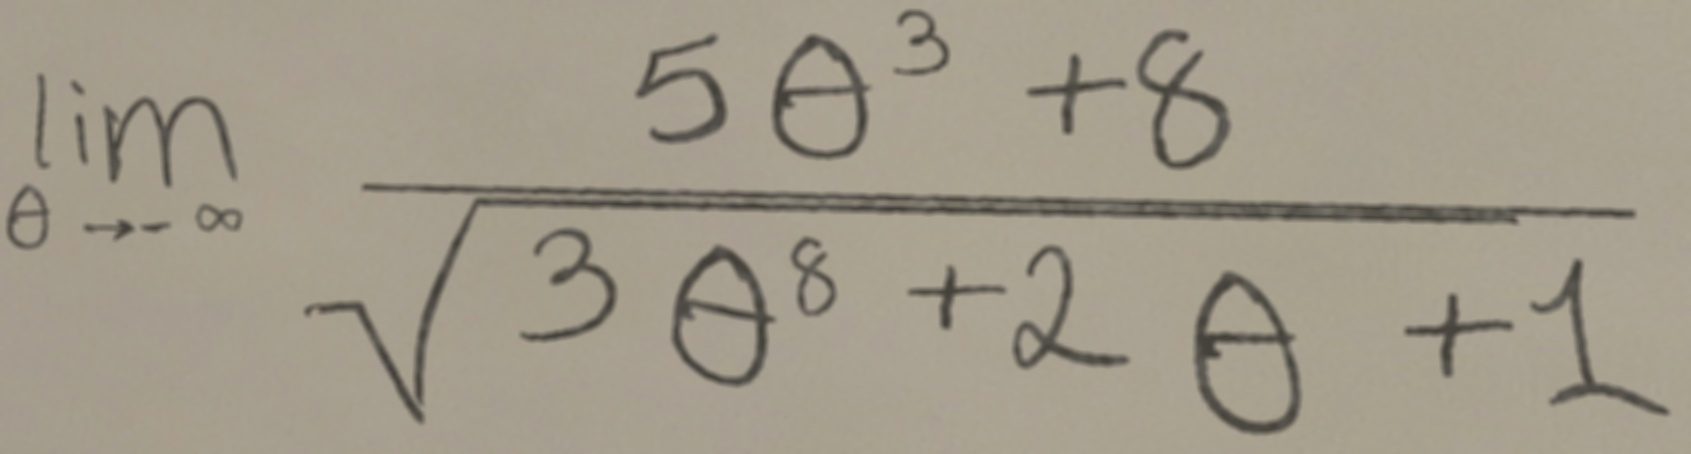 \lim_{\theta \to -\infty} \frac{5\theta^3 + 8}{\sqrt{3\theta^8 + 2\theta + 1}}